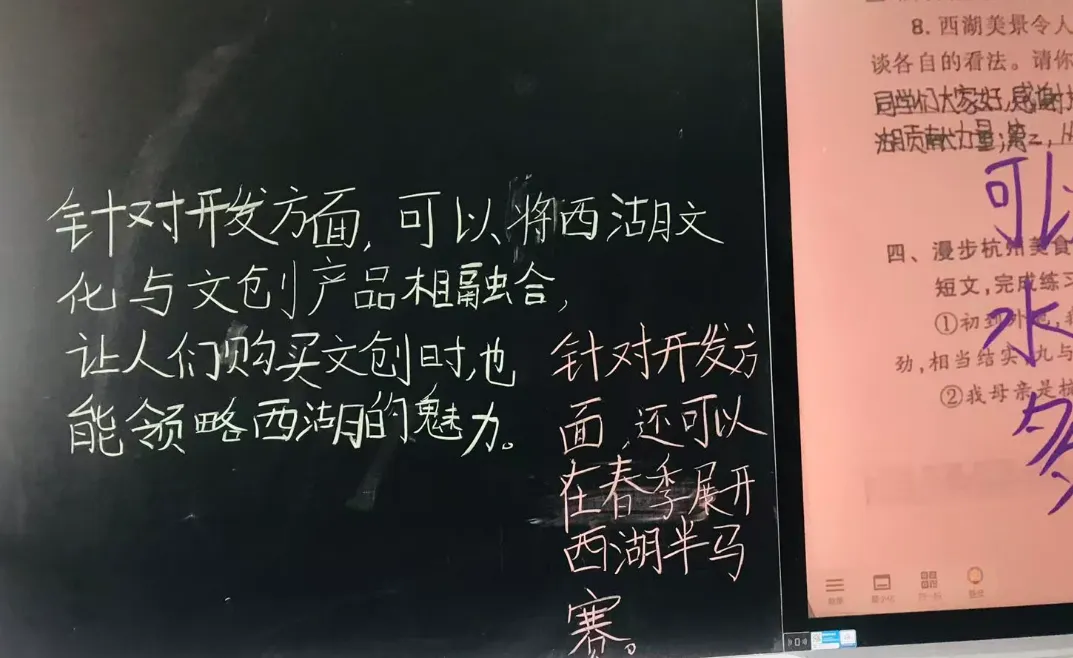 针对开发方面,可以将西湖文
化与文创产品相融合,
让人们购买文创时,也
能领略西湖的魅力。
针对开发方
面,还可以
在春季展开
西湖半马
赛。
8. 西湖美景令人
谈各自的看法。请你
同学们大家好,感谢
湖贡献力量;第二,
可以
四、漫步杭州美食
短文,完成练习
①初到外地,
水
劲,相当结实,丸与
②我母亲是杭